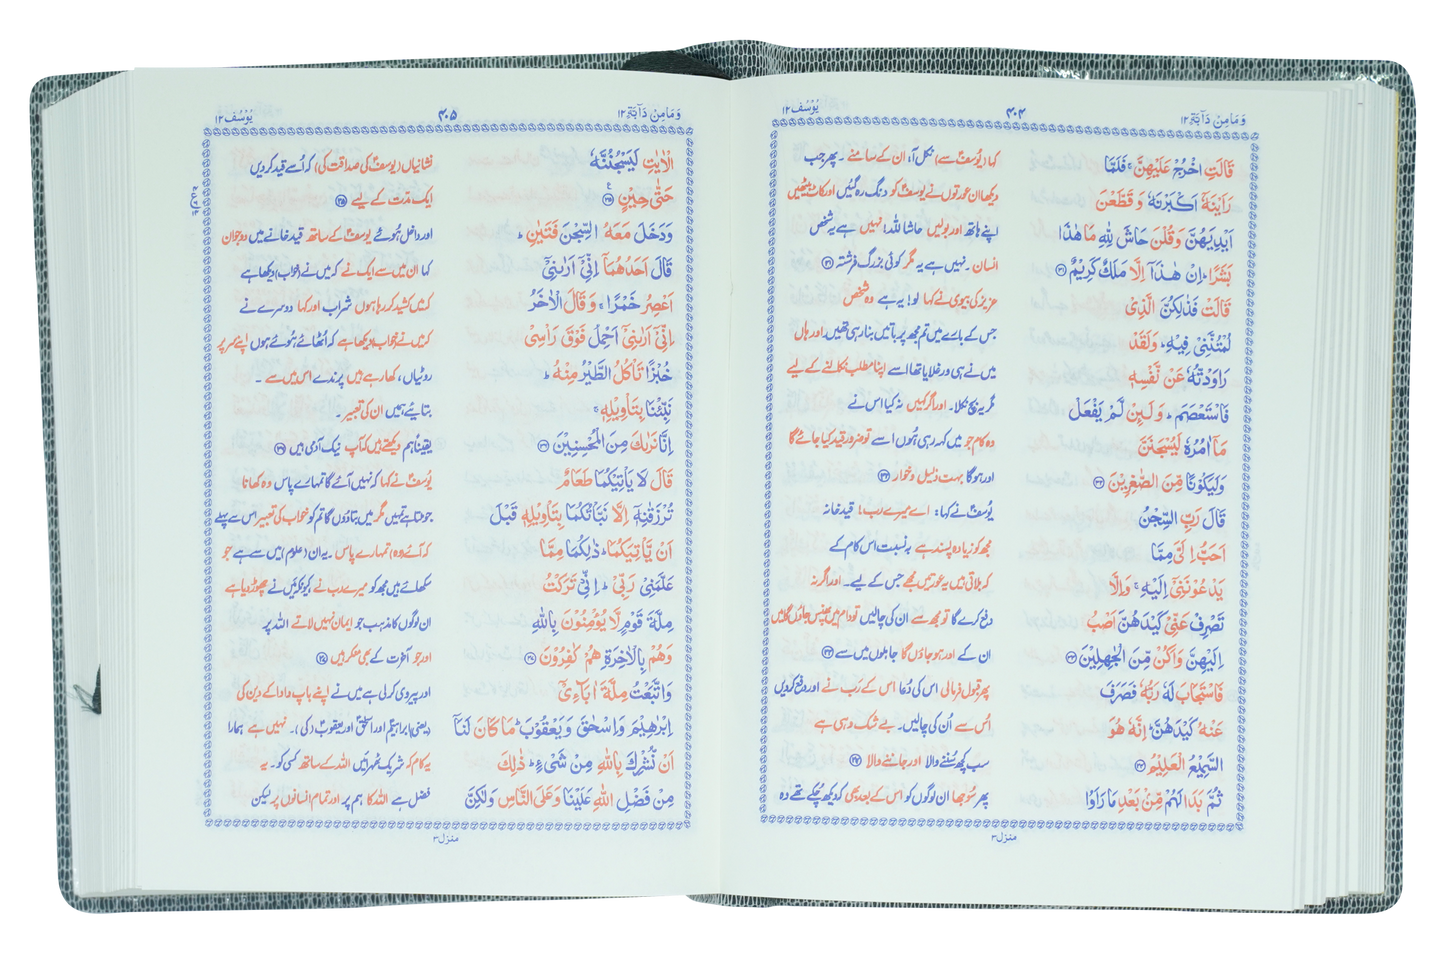 وَمَا مِنْ دَآبَّةٍ ۱۲ ۴۰۴ يُوْسُف ۱۲
قَالَتِ اخْرُجْ عَلَيْهِنَّ ۚ فَلَمَّا کہا (یوسفؑ سے) نکل آ، ان کے سامنے ۔ پھر جب
رَاَيْنَهٗۤ اَكْبَرْنَهٗ وَ قَطَّعْنَ دیکھا ان عورتوں نے یوسفؑ کو دنگ رہ گئیں اور کاٹ بیٹھیں
اَيْدِيَهُنَّ وَقُلْنَ حَاشَ لِلّٰهِ مَا هٰذَا اپنے ہاتھ اور بولیں حاشا للہ! نہیں ہے یہ شخص
بَشَرًا ؕ اِنْ هٰذَاۤ اِلَّا مَلَكٌ كَرِيْمٌ ۳۱ انسان ۔ نہیں ہے یہ مگر کوئی بزرگ فرشتہ ۳۱
قَالَتْ فَذٰلِكُنَّ الَّذِيْ عزیز کی بیوی نے کہا لو! یہ ہے وہ شخص
لُمْتُنَّنِيْ فِيْهِ ؕ وَلَقَدْ جس کے بارے میں تم مجھ پر باتیں بنا رہی تھیں اور ہاں
رَاوَدْتُّهٗ عَنْ نَّفْسِهٖ میں نے ہی ورغلایا تھا اسے اپنا مطلب نکالنے کے لیے
فَاسْتَعْصَمَ ؕ وَلَئِنْ لَّمْ يَفْعَلْ مگر یہ بچ نکلا۔ اور اگر کہیں نہ کیا اس نے
مَاۤ اٰمُرُهٗ لَيُسْجَنَنَّ وہ کام جو میں کہہ رہی ہوں اسے تو ضرور قید کیا جائے گا
وَلَيَكُوْنًا مِّنَ الصّٰغِرِيْنَ ۳۲ اور ہوگا بہت ذلیل و خوار ۳۲
قَالَ رَبِّ السِّجْنُ یوسفؑ نے کہا: اے میرے رب! قید خانہ
اَحَبُّ اِلَيَّ مِمَّا مجھ کو زیادہ پسند ہے بہ نسبت اس کام کے
يَدْعُوْنَنِيْۤ اِلَيْهِ ۚ وَاِلَّا کہ بلاتی ہیں یہ عورتیں مجھے جس کے لیے۔ اور اگر نہ
تَصْرِفْ عَنِّيْ كَيْدَهُنَّ اَصْبُ دفع کرے گا تو مجھ سے ان کی چالیں تو دام میں پھنس جاؤں گا میں
اِلَيْهِنَّ وَاَكُنْ مِّنَ الْجٰهِلِيْنَ ۳۳ ان کے اور ہو جاؤں گا جاہلوں میں سے ۳۳
فَاسْتَجَابَ لَهٗ رَبُّهٗ فَصَرَفَ پھر قبول فرمائی اس کی دُعا اس کے رب نے اور دفع کر دیں
عَنْهُ كَيْدَهُنَّ ؕ اِنَّهٗ هُوَ اُس سے اُن کی چالیں۔ بے شک وہی ہے
السَّمِيْعُ الْعَلِيْمُ ۳۴ سب کچھ سُننے والا اور جاننے والا ۳۴
ثُمَّ بَدَا لَهُمْ مِّنْ بَعْدِ مَا رَاَوُا پھر سُوجھا ان لوگوں کو اس کے بعد بھی کہ دیکھ چکے تھے وہ
منزل ۳
وَمَا مِنْ دَآبَّةٍ ۱۲ ۴۰۵ يُوْسُف ۱۲
الْاٰيٰتِ لَيَسْجُنُنَّهٗ نشانیاں (یوسفؑ کی صداقت کی) کہ اُسے قید کر دیں
حَتّٰى حِيْنٍ ۳۵ ایک مدت کے لیے ۳۵
وَدَخَلَ مَعَهُ السِّجْنَ فَتَيٰنِ ؕ اور داخل ہُوئے یوسفؑ کے ساتھ قید خانے میں دو جوان
قَالَ اَحَدُهُمَاۤ اِنِّيْۤ اَرٰىنِيْۤ کہا ان میں سے ایک نے کہ میں نے (خواب) دیکھا ہے
اَعْصِرُ خَمْرًا ۚ وَقَالَ الْاٰخَرُ کہ میں کشید کر رہا ہوں شراب اور کہا دوسرے نے
اِنِّيْۤ اَرٰىنِيْۤ اَحْمِلُ فَوْقَ رَاْسِيْ کہ میں نے خواب دیکھا ہے کہ اُٹھائے ہُوئے ہوں اپنے سر پر
خُبْزًا تَاْكُلُ الطَّيْرُ مِنْهُ ؕ روٹیاں، کھا رہے ہیں پرندے اس میں سے ۔
نَبِّئْنَا بِتَاْوِيْلِهٖ ۚ بتائیے ہمیں ان کی تعبیر۔
اِنَّا نَرٰىكَ مِنَ الْمُحْسِنِيْنَ ۳۶ یقیناً ہم دیکھتے ہیں کہ آپ نیک آدمی ہیں ۳۶
قَالَ لَا يَاْتِيْكُمَا طَعَامٌ یُوسفؑ نے کہا کہ نہیں آئے گا تمہارے پاس وہ کھانا
تُرْزَقٰنِهٖۤ اِلَّا نَبَّاْتُكُمَا بِتَاْوِيْلِهٖ قَبْلَ جو ملتا ہے تمہیں مگر میں بتا دوں گا تم کو خواب کی تعبیر اس سے پہلے
اَنْ يَّاْتِيَكُمَا ؕ ذٰلِكُمَا مِمَّا کہ آئے وہ تمہارے پاس ۔ یہ ان (علوم) میں سے ہے جو
عَلَّمَنِيْ رَبِّيْ ؕ اِنِّيْ تَرَكْتُ سکھائے ہیں مجھ کو میرے رب نے کیونکہ میں نے چھوڑ دیا ہے
مِلَّةَ قَوْمٍ لَّا يُؤْمِنُوْنَ بِاللّٰهِ ان لوگوں کا مذہب جو ایمان نہیں لاتے اللہ پر
وَهُمْ بِالْاٰخِرَةِ هُمْ كٰفِرُوْنَ ۳۷ اور جو آخرت کے بھی منکر ہیں ۳۷
وَاتَّبَعْتُ مِلَّةَ اٰبَآءِيْۤ اور پیروی کر لی ہے میں نے اپنے باپ دادا کے دین کی
اِبْرٰهِيْمَ وَاِسْحٰقَ وَيَعْقُوْبَ ؕ مَا كَانَ لَنَاۤ (یعنی) ابراہیمؑ اور اسحٰقؑ اور یعقوبؑ (کی) ۔ نہیں ہے ہمارا
اَنْ نُّشْرِكَ بِاللّٰهِ مِنْ شَيْءٍ ؕ ذٰلِكَ یہ کام کہ شریک ٹھہرائیں اللہ کے ساتھ کسی کو۔ یہ
مِنْ فَضْلِ اللّٰهِ عَلَيْنَا وَعَلَى النَّاسِ وَلٰكِنَّ فضل ہے اللہ کا ہم پر اور تمام انسانوں پر لیکن
منزل ۳